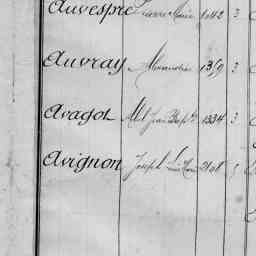 Auvespre Pierre Marie 1042 3
Auvray Alexandre 1359 3
Avagot Abl Jean Bapte 1334 3
Avignon Joseph 2108 3